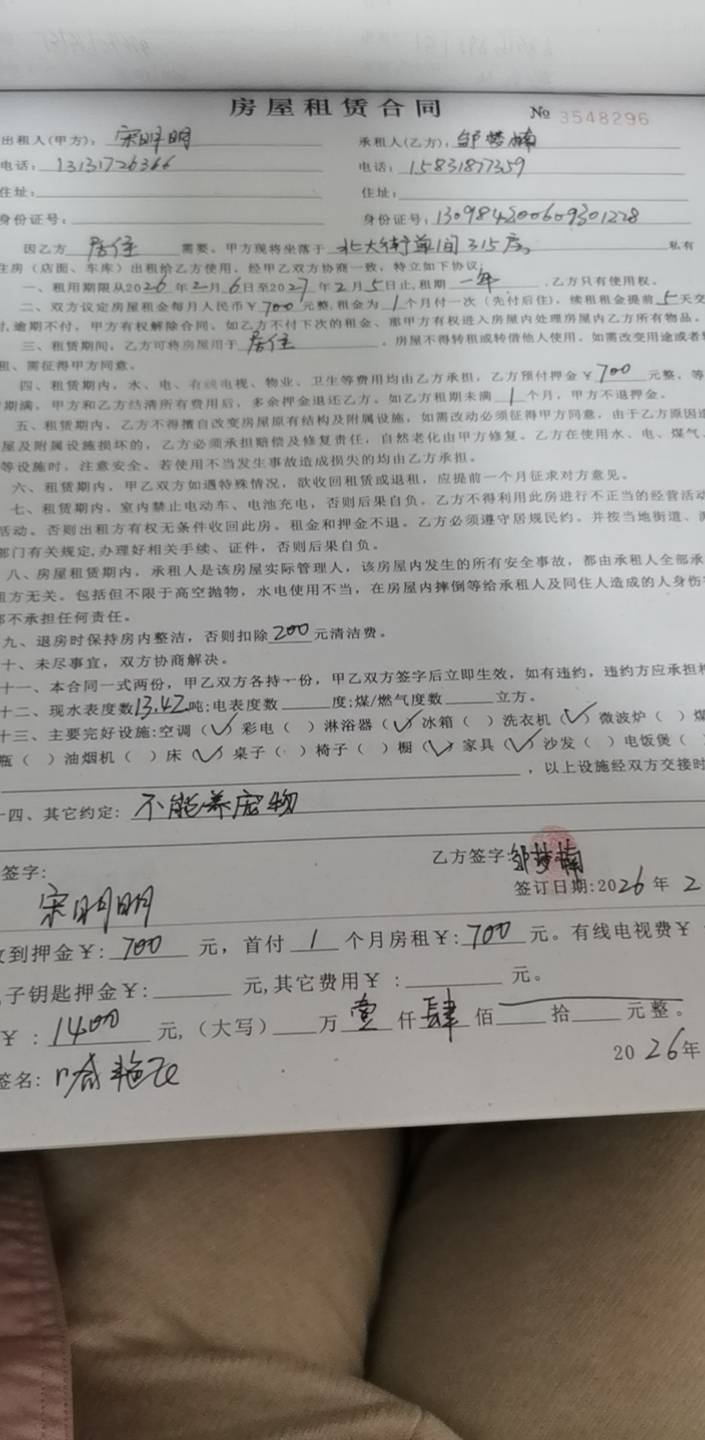 房屋租赁合同 № 3548296
出租人(甲方)： 宋明明 承租人(乙方)： 邹梦楠
电话： 13131726366 电话： 15831877359
住址： 住址：
身份证号： 身份证号：
因乙方 居住 需要，甲方现将坐落于 北大街单间315房。 私有
住房（店面、车库）出租给乙方使用，经甲乙双方协商一致，特立如下协议：
一、租用期限从2026年2月6日至2027年2月5日止，租期 一年 ，乙方只有使用权。
二、双方议定房屋租金每月人民币￥700元整，租金为 1 个月付一次（先付后住），续租租金提前5天交
付，逾期不付，甲方有权解除合同。如乙方不付下次的租金、那甲方有权进入房屋内处理房屋内乙方所有物品。
三、租赁期间，乙方可将房屋用于 居住 ，房屋不得转租或转借他人使用。如需改变用途或者
租、需征得甲方同意。
四、租赁期内，水、电、有线电视、物业、卫生等费用均由乙方承担，乙方预付押金￥700元整，等
期满，甲方和乙方结清所有费用后，多余押金退还乙方。如乙方租期未满 1 个月，甲方不退押金。
五、租赁期内，乙方不得擅自改变房屋原有结构及附属设施，如需改动必须征得甲方同意，由于乙方原因
屋及附属设施损坏的，乙方必须承担赔偿及修复责任，自然老化由甲方修复。乙方在使用水、电、煤气、
等设施时，注意安全。若使用不当发生事故造成损失的均由乙方承担。
六、租赁期内，甲乙双方如遇特殊情况，欲收回租赁或退租，应提前一个月征求对方意见。
七、租赁期内，室内禁止电动车、电池充电，否则后果自负。乙方不得利用此房进行不正当的经营活动
活动。否则出租方有权无条件收回此房。租金和押金不退。乙方必须遵守居规民约。并按当地街道、
部门有关规定，办理好相关手续、证件，否则后果自负。
八、房屋租赁期内，承租人是该房屋实际管理人，该房屋内发生的所有安全事故，都由承租人全部承
租方无关。包括但不限于高空抛物，水电使用不当，在房屋内摔倒等给承租人及同住人造成的人身伤
都不承担任何责任。
九、退房时保持房内整洁，否则扣除200元清洁费。
十、未尽事宜，双方协商解决。
十一、本合同一式两份，甲乙双方各持一份，甲乙双方签字后立即生效，如有违约，违约方应承担
十二、现水表度数13.42吨；电表度数 度；煤/燃气度数 立方。
十三、主要完好设施：空调（√）彩电（ ）淋浴器（√）冰箱（ ）洗衣机（√）微波炉（ ）煤
瓶（ ）油烟机（ ）床（√）桌子（ ）椅子（ ）橱（√）家具（√）沙发（ ）电饭煲（
，以上设施经双方交接时
十四、其它约定： 不能养宠物
签字： 乙方签字： 邹梦楠
宋明明 签订日期：2026年2
收到押金￥： 700 元，首付 1 个月房租￥：700 元。有线电视费￥
子钥匙押金￥： 元，其它费用￥： 元。
￥： 1400 元，（大写） 万 壹 仟 肆 佰 拾 元整。
2026年
签名：